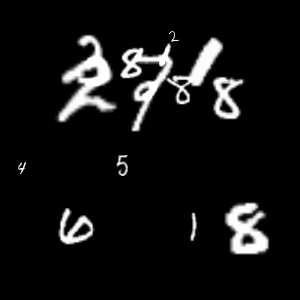 2
8 9 8 1 8
4 5
6 1 8